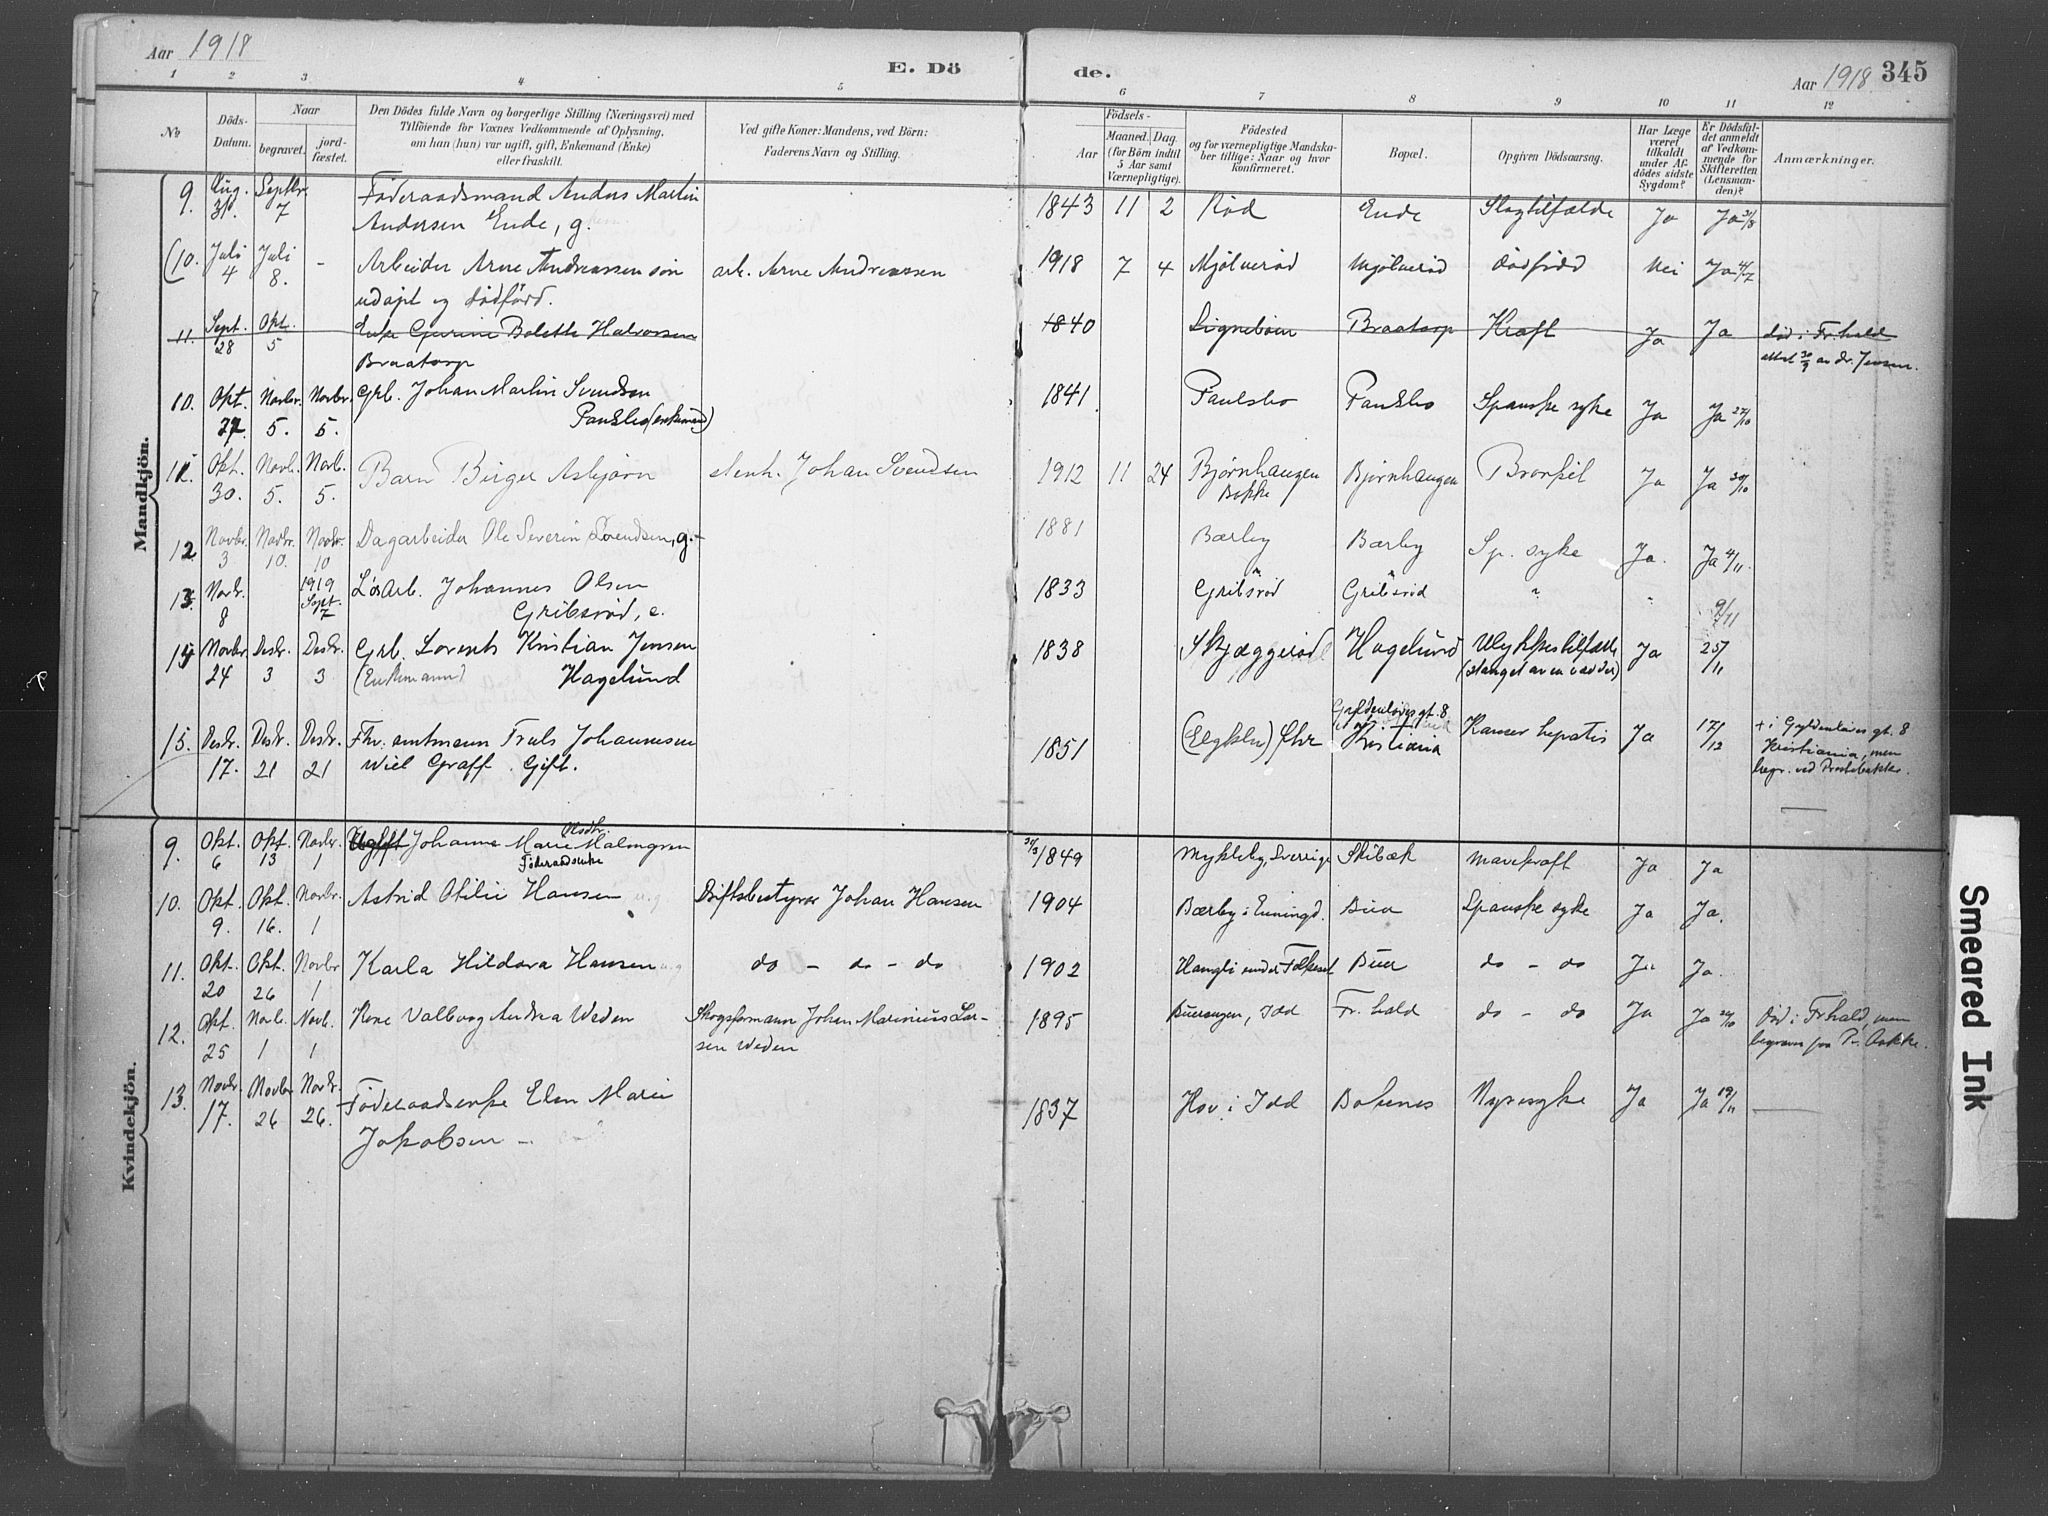 Aar 1918
E. Dö
de.
Aar 1918 345
1 2 3 4 5 6 7 8 9 10 11 12
No
Döds-
Datum.
Naar
begravet.
jord-
fæstet.
Den Dödes fulde Navn og borgerlige Stilling (Næringsvei) med
Tilföiende for Voxnes Vedkommende af Oplysning,
om han (hun) var ugift, gift, Enkemand (Enke)
eller fraskilt.
Ved gifte Koner: Mandens, ved Börn:
Faderens Navn og Stilling.
Födsels-
Aar
Maaned. Dag.
(for Börn indtil
5 Aar samt
Værnepligtige).
Födested
og for værnepligtige Mandska-
ber tillige: Naar og hvor
konfirmeret.
Bopæl.
Opgiven Dödsaarsag.
Har Læge
været
tilkaldt
under Af-
dödes sidste
Sygdom?
Er Dödsfal-
det anmeldt
af Vedkom-
mende for
Skifteretten
(Lensman-
den)?
Anmærkninger.
Mandkjön.
9. Aug. Septbr. Föderaadsmand Anders Martin 1843 11 2 Röd Ende Slagtilfælde Ja Ja 31/8
7 Andersen Ende, g.
(10. Juli Juli - Arbeider Arne Andreassen søn arb. Arne Andreassen 1918 7 4 Mjølnerød Mjølnerød dødfødd Nei Ja 4/7
4 8. udøpt og dödförd.
11. Sept. Okt. Enke Gurine Bolette Halvorsen 1840 Lignebøen Braatorp Kræft Ja Ja död i Fr.hald
28 5 Braatorp attest 30/9 av dr. Jensen.
10. Okt. Novbr. Novbr. Grb. Johan Martin Svendsen 1841 Paulsbo Paulsbo Spanske syke Ja Ja 27/10
27. 5. 5. Paulsbo (enkemand)
11. Okt. Novb. Novb. Barn Birger Asbjørn stenh. Johan Svendsen 1912 11 24 Bjørnhaugen Bjørnhaugen Bronkit Ja Ja 30/10
30. 5. 5. Bokke
12 Novbr. Novbr. Novbr. Dagarbeider Ole Severin Svendsen, g. 1881 Bærby Bærby Sp. syke Ja. Ja 4/11.
3 10. 10
13 Novbr. 1919 Løsarb. Johannes Olsen 1833 Gribsrød Gribsrød " " 9/11
8 Sept. 7 Gribsrød, e.
14 Novbr. Desbr. Desbr. Grb. Lorents Kristian Jensen 1838 Skjæggerød Hagelund Ulykkestilfælde Ja 25/11
24 3 3 (Enkemann) Hagelund (stanget av en vædder)
15. Desbr. Desbr. Desbr. Fhv. amtmann Truls Johannesen 1851 Gyldenløves gt. 8 Kristiania Kanser hepatis Ja 17/12 + i Gyldenløves gt. 8
17. 21 21 Wiel Graff. Gift. Kristiania, men
begr. ved Prestebakke.
Kvindekjön.
9. Okt. Okt. Novbr. Ugift Johanne Marie Olsdtr. Malmgren 30/3 1849 Mykleby, Sverrige Skibæk Mavekræft Ja Ja
6 13 1 Föderaadsenke
10. Okt. Okt. Novbr. Astrid Otilie Hansen u.g Driftsbestyrer Johan Hansen 1904 Bærby i Enningd. Buer Spanske syke Ja Ja.
9. 16. 1
11. Okt. Okt. Novbr Karla Hildora Hansen u.g do - do - do 1902 under Buer do - do Ja Ja.
20 26 1
12. Okt. Novb. Novb. Kone Valborg Andrea Weden Skogsformann Johan Marinius Lar- 1895 Buerengen, Idd Fr. hald do - do Ja Ja 26/10 Död i Fr.hald, men
25 1 1 sen Weden begraven paa Pr. bakke.
13. Novbr. Novbr Novbr. Föderaadsenke Elen Marie 1837 Hov i Idd Bokenes Nyresyke Ja Ja 19/11
17. 26 26. Jakobsen -
Smeared Ink